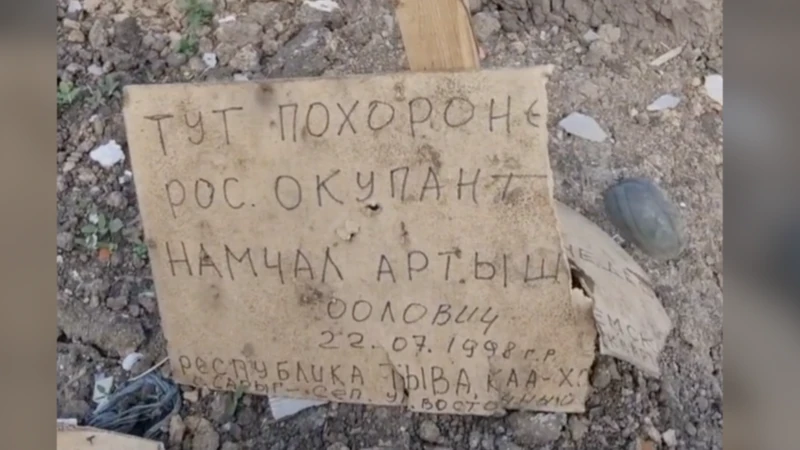 ТУТ ПОХОРОНЄ
РОС. ОКУПАНТ
НАМЧАЛ АРТЫШ
ООЛОВИЧ
22.07.1998 г.р.
РЕСПУБЛИКА ТЫВА, КАА-Х
С. САРЫГ-СЕП, У. ВОСТОЧНЫЙ